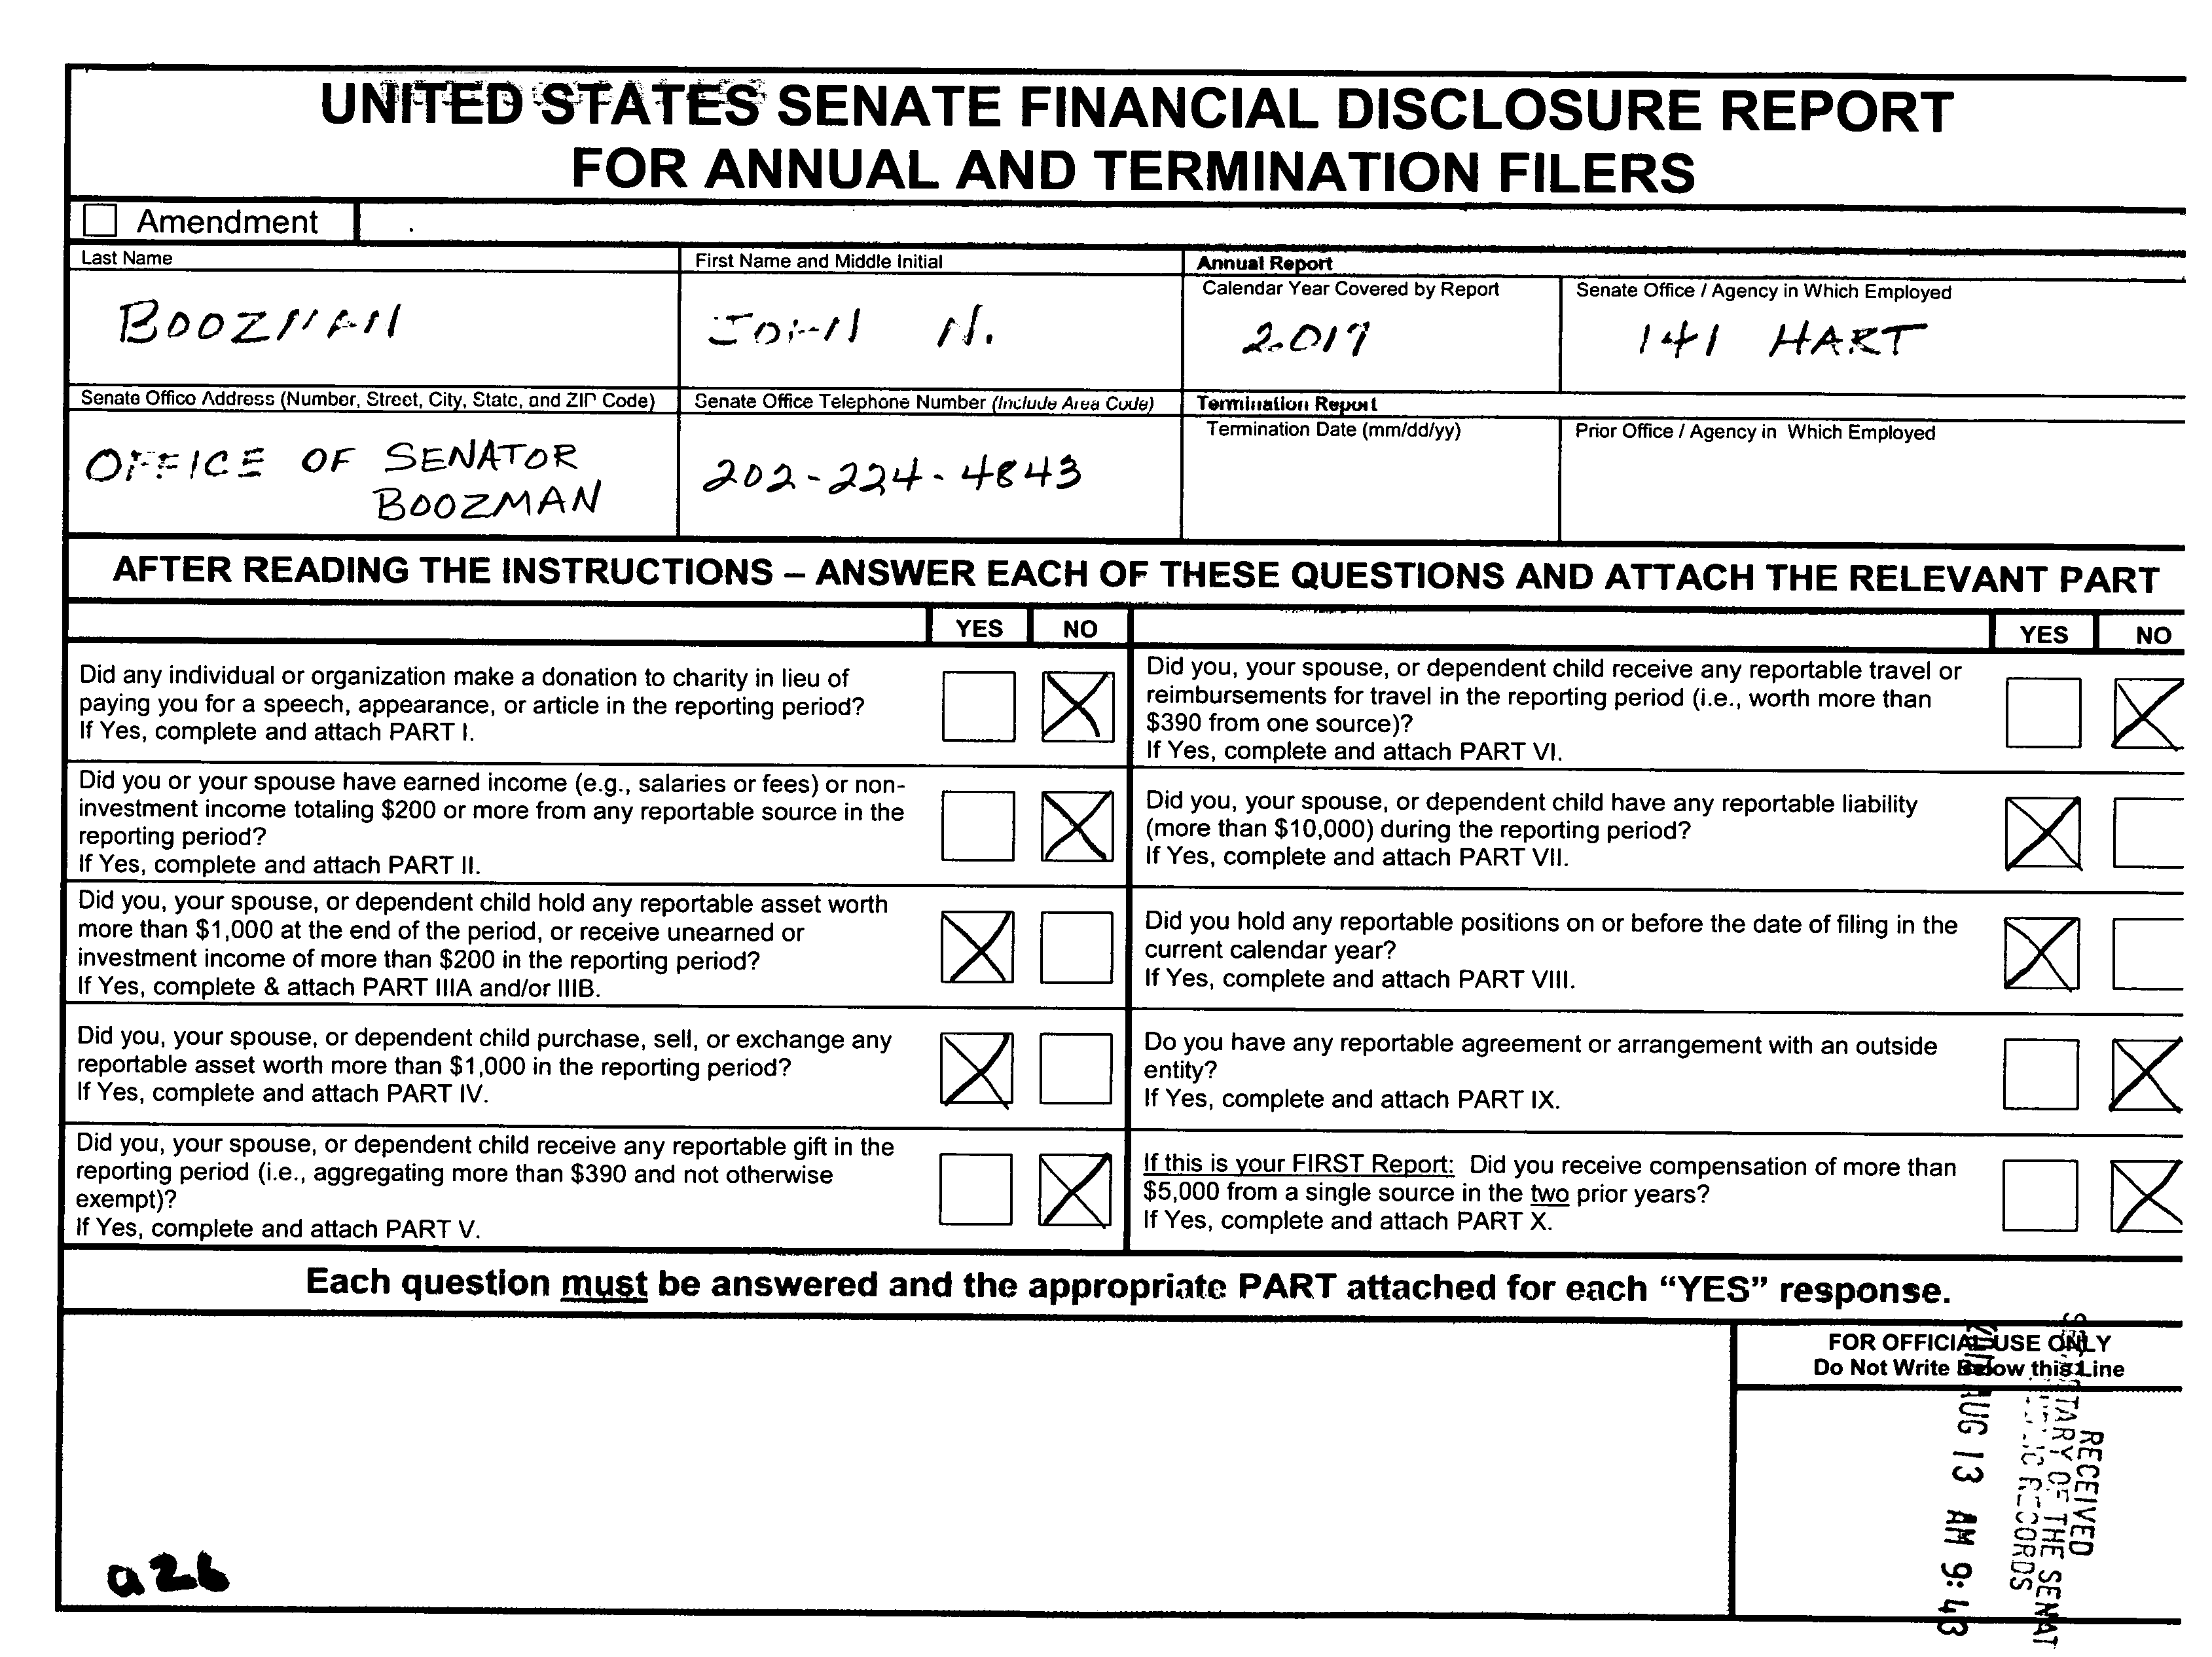 UNITED STATES SENATE FINANCIAL DISCLOSURE REPORT
FOR ANNUAL AND TERMINATION FILERS
Amendment
Last Name
First Name and Middle Initial
Annual Report
Calendar Year Covered by Report
Senate Office / Agency in Which Employed
BOOZMAN
JOHN N.
2017
141 HART
Senate Office Address (Number, Street, City, State, and ZIP Code)
Senate Office Telephone Number (Include Area Code)
Termination Report
Termination Date (mm/dd/yy)
Prior Office / Agency in Which Employed
OFFICE OF SENATOR
BOOZMAN
202-224-4843
AFTER READING THE INSTRUCTIONS – ANSWER EACH OF THESE QUESTIONS AND ATTACH THE RELEVANT PART
YES NO
Did any individual or organization make a donation to charity in lieu of
paying you for a speech, appearance, or article in the reporting period?
If Yes, complete and attach PART I.
Did you or your spouse have earned income (e.g., salaries or fees) or non-
investment income totaling $200 or more from any reportable source in the
reporting period?
If Yes, complete and attach PART II.
Did you, your spouse, or dependent child hold any reportable asset worth
more than $1,000 at the end of the period, or receive unearned or
investment income of more than $200 in the reporting period?
If Yes, complete & attach PART IIIA and/or IIIB.
Did you, your spouse, or dependent child purchase, sell, or exchange any
reportable asset worth more than $1,000 in the reporting period?
If Yes, complete and attach PART IV.
Did you, your spouse, or dependent child receive any reportable gift in the
reporting period (i.e., aggregating more than $390 and not otherwise
exempt)?
If Yes, complete and attach PART V.
YES NO
Did you, your spouse, or dependent child receive any reportable travel or
reimbursements for travel in the reporting period (i.e., worth more than
$390 from one source)?
If Yes, complete and attach PART VI.
Did you, your spouse, or dependent child have any reportable liability
(more than $10,000) during the reporting period?
If Yes, complete and attach PART VII.
Did you hold any reportable positions on or before the date of filing in the
current calendar year?
If Yes, complete and attach PART VIII.
Do you have any reportable agreement or arrangement with an outside
entity?
If Yes, complete and attach PART IX.
If this is your FIRST Report: Did you receive compensation of more than
$5,000 from a single source in the two prior years?
If Yes, complete and attach PART X.
Each question must be answered and the appropriate PART attached for each “YES” response.
FOR OFFICIAL USE ONLY
Do Not Write Below this Line
RECEIVED
SECRETARY OF THE SENAT
RECORDS
AUG 13 AM 9:43
a26